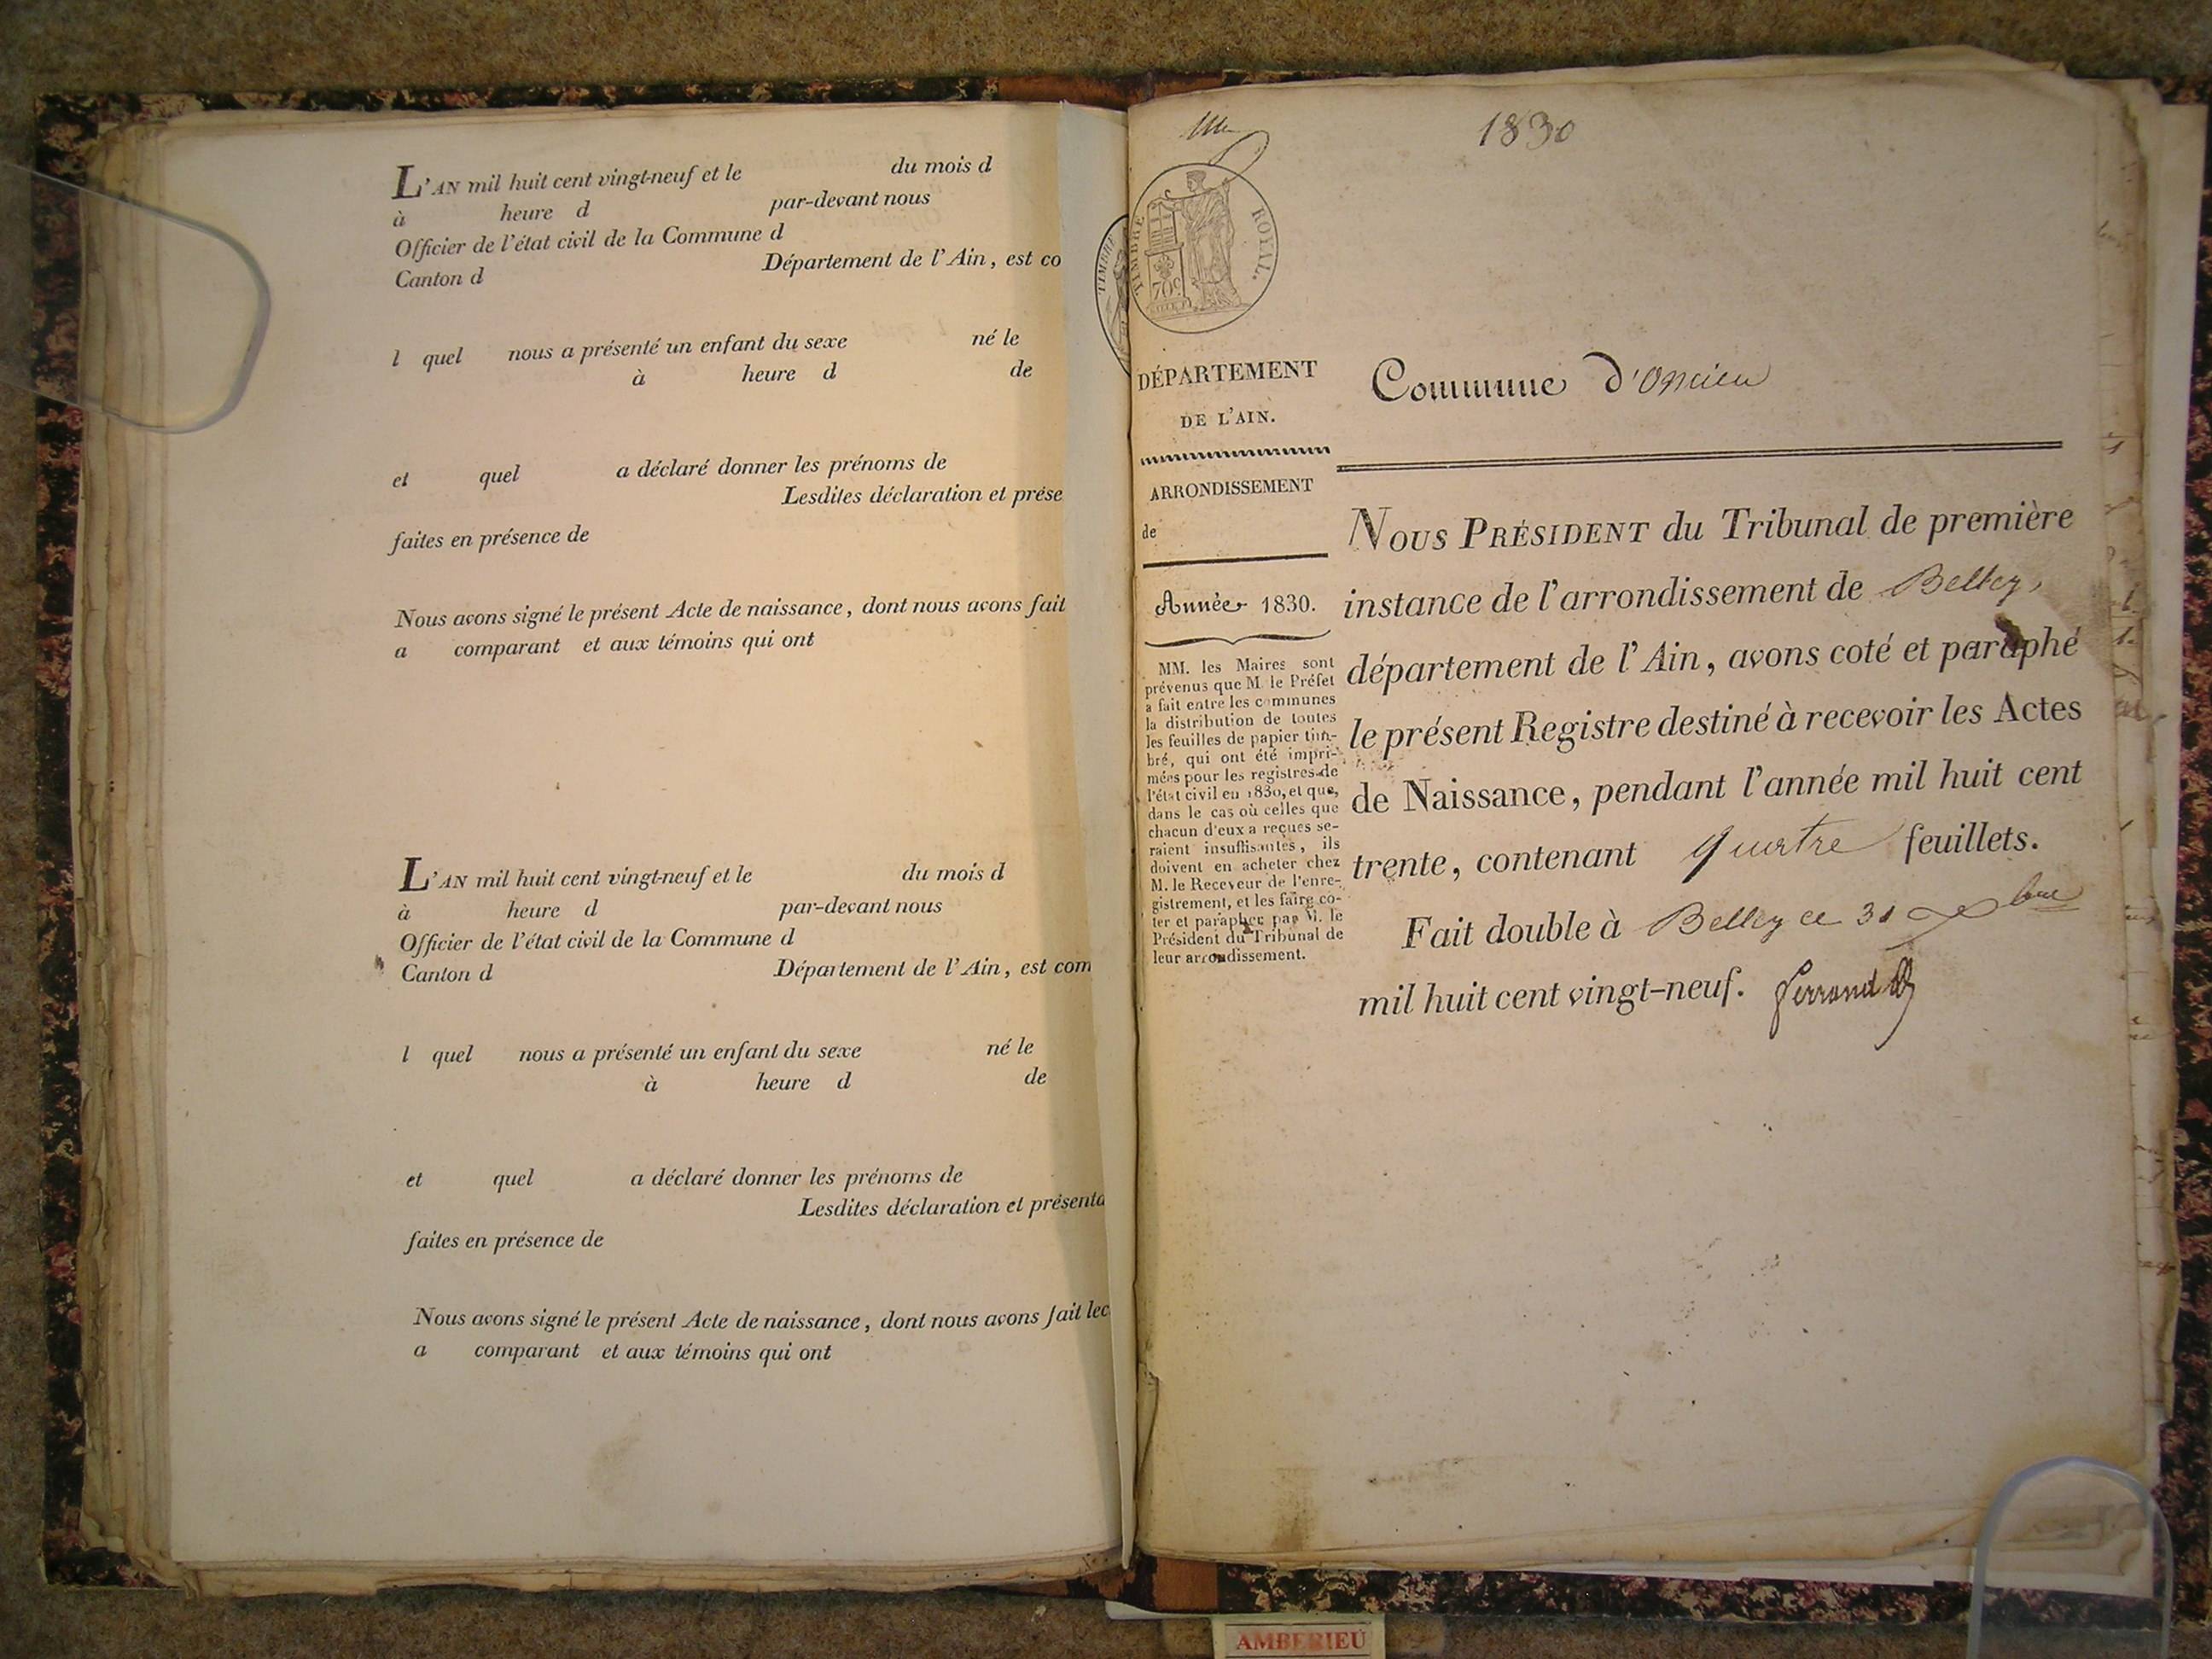 L'AN mil huit cent vingt-neuf et le du mois d
à heure d par-devant nous
Officier de l'état civil de la Commune d
Canton d Département de l'Ain, est co
l quel nous a présenté un enfant du sexe né le
à heure d de
et quel a déclaré donner les prénoms de
Lesdites déclaration et prése
faites en présence de
Nous avons signé le présent Acte de naissance, dont nous avons fait
a comparant et aux témoins qui ont
L'AN mil huit cent vingt-neuf et le du mois d
à heure d par-devant nous
Officier de l'état civil de la Commune d
Canton d Département de l'Ain, est com
l quel nous a présenté un enfant du sexe né le
à heure d de
et quel a déclaré donner les prénoms de
Lesdites déclaration et présenta
faites en présence de
Nous avons signé le présent Acte de naissance, dont nous avons fait lec
a comparant et aux témoins qui ont
1830
TIMBRE
TIMBRE ROYAL.
70c
DÉPARTEMENT
DE L'AIN.
ARRONDISSEMENT
de
Année 1830.
MM. les Maires sont
prévenus que M. le Préfet
a fait entre les communes
la distribution de toutes
les feuilles de papier tim-
bré, qui ont été impri-
mées pour les registres de
l'état civil en 1830, et que,
dans le cas où celles que
chacun d'eux a reçues se-
raient insuffisantes, ils
doivent en acheter chez
M. le Receveur de l'enre-
gistrement, et les faire co-
ter et parapher par M. le
Président du Tribunal de
leur arrondissement.
Commune d'Oncieu
NOUS PRÉSIDENT du Tribunal de première
instance de l'arrondissement de Belley,
département de l'Ain, avons coté et paraphé
le présent Registre destiné à recevoir les Actes
de Naissance, pendant l'année mil huit cent
trente, contenant quatre feuillets.
Fait double à Belley ce 31 xbre
mil huit cent vingt-neuf. Ferrand
AMBERIEU